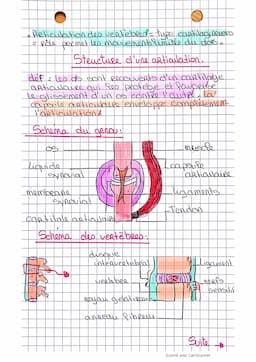 • Articulation des vertèbres = type cartilagineuse
= rôle permet les mouvements limités du dos.
Structure d'une articulation.
déf = les os sont recouverts d'un cartilage
articulaire qui les protège et favorise
le glissement d'un os contre l'autre. La
capsule articulaire enveloppe complètement
l'articulation.
Schéma du genou:
os
muscle
liquide
synovial
capsule
articulaire
membrane
synovial
ligaments
Tendon
cartilage articulaire
Schéma des vertèbres:
disque
intervertébral
ligament
vertèbre
nerfs
noyau gélatineux
anneau fibreux
Suite →
Scanné avec CamScanner